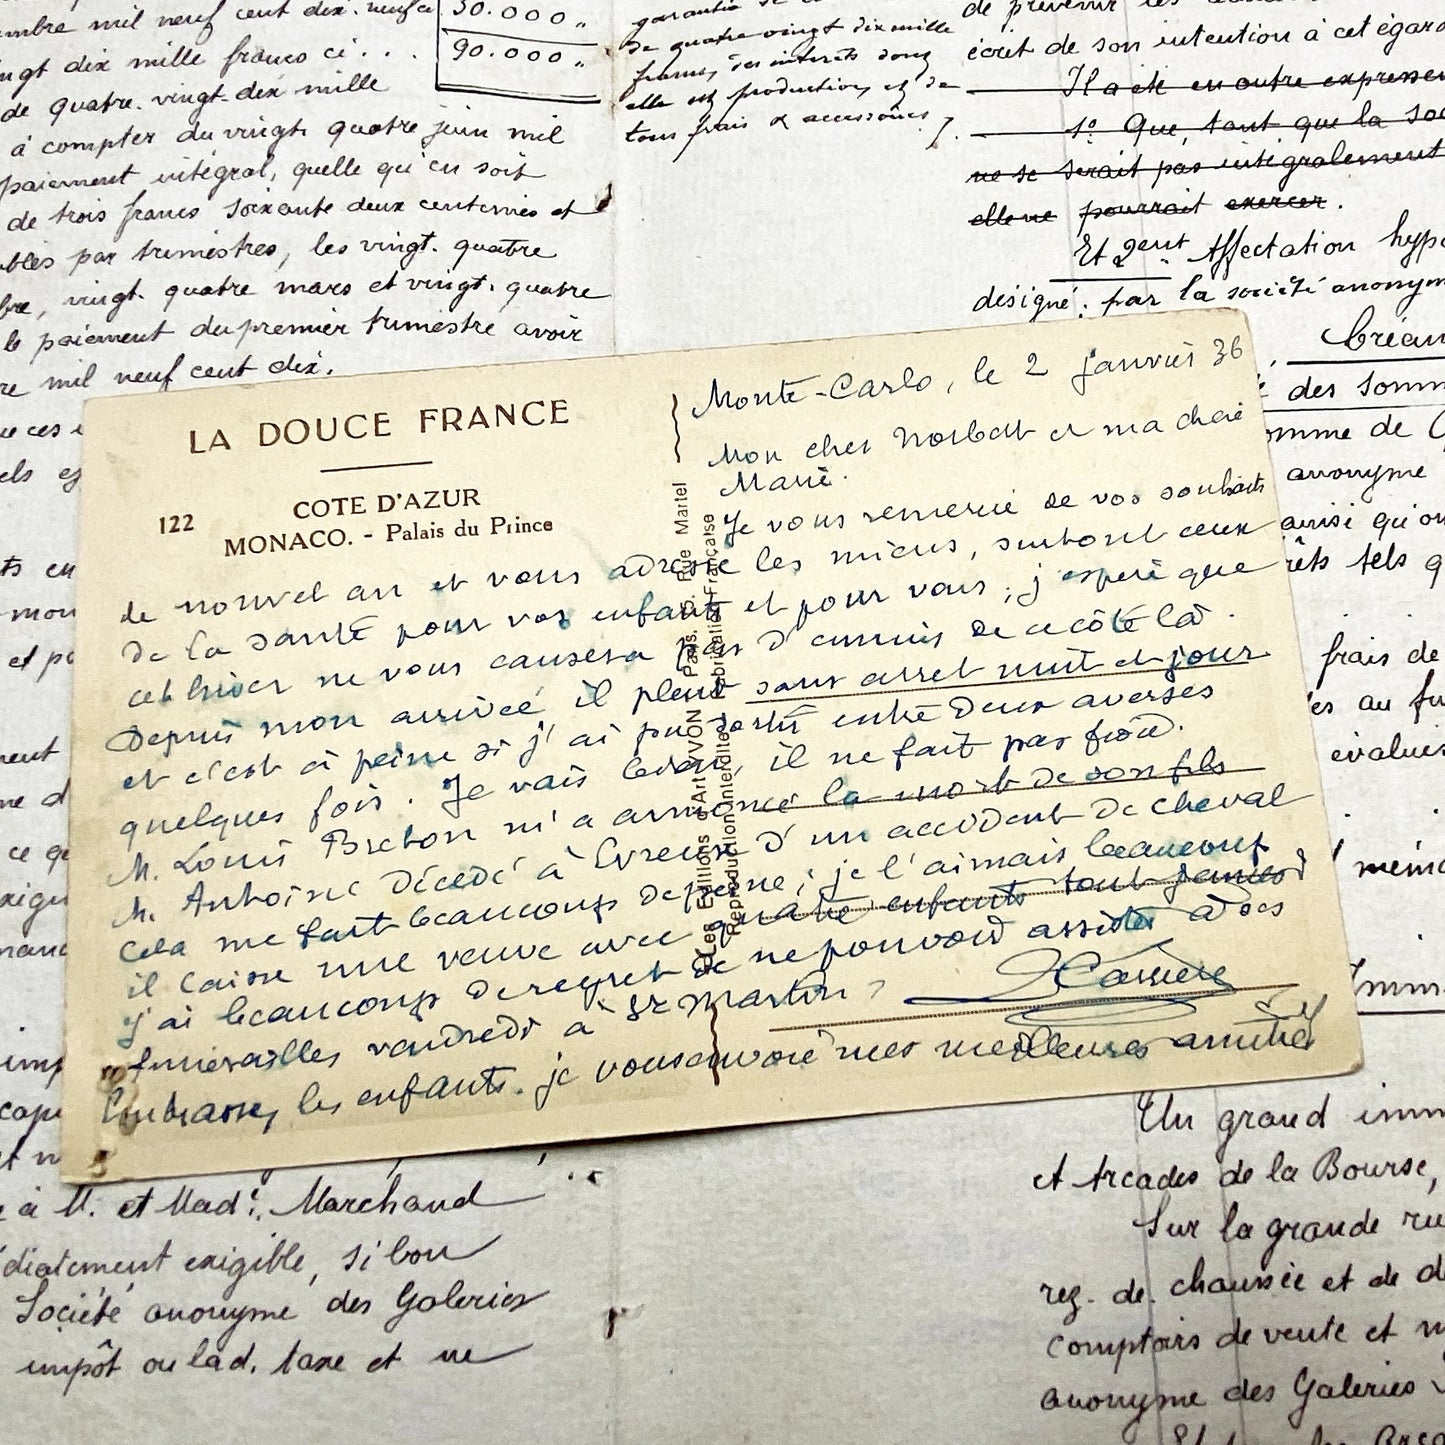 mbre mil neuf cent dix. neuf a
30.000 "
ngt dix mille francs ci . . .
90.000 "
de quatre. vingt. dix mille
à compter du vingt quatre juin mil
paiement intégral, quelle qu'en soit
de trois francs soixante deux centimes et
bles par trimestres, les vingt. quatre
bre, vingt. quatre mars et vingt. quatre
le paiement du premier trimestre avoir
re mil neuf cent dix.
garantie
de quatre vingt dix mille
francs, des intérêts dont
elle est production, et de
tous frais & accessoires
de prévenir les
écrit de son intention à cet égard
Il a été en outre expressé
1º Que, tant que la soc
ne se serait pas intégralement
elle ne pourrait exercer.
Et 2ent Affectation hypo
désigné: par la société anonym
Créan
des somm
omme de
anonyme
ainsi qu'on
rêts tels q
frais de
es au fu
évalués
LA DOUCE FRANCE
122
COTE D'AZUR
MONACO. - Palais du Prince
Les Editions d'Art YVON Paris, 15, Rue Martel
Reproduction Interdite Fabrication Française
Monte-Carlo, le 2 janvier 36
Mon cher Norbert et ma chère
Marie.
Je vous remercie de vos souhaits
de nouvel an et vous adresse les miens, surtout ceux
de la santé pour vos enfants et pour vous ; j'espère que
cet hiver ne vous causera pas d'ennuis de ce côté là .
Depuis mon arrivée il pleut sans arret nuit et jour
et c'est à peine si j'ai pu sortir entre deux averses
quelques fois. Je vais bien, il ne fait pas froid.
M. Louis Breton m'a annoncé la mort de son fils
M. Antoine décédé à Evreux d'un accident de cheval
Cela me fait beaucoup de peine ; je l'aimais beaucoup
il laisse une veuve avec quatre enfants tout jeunes
J'ai beaucoup de regret de ne pouvoir assister à ses
funerailles vendredi à St Martin
Carrière
Embrassez les enfants. je vous envoie mes meilleures amitiés
à M. et Made. Marchand
édiatement exigible, si bon
Société anonyme des Galeries
impôt ou lad. taxe et ne
Un grand imm
et Arcades de la Bourse,
Sur la grande rue
rez. de. chaussée et de d
comptoirs de vente et m
anonyme des Galeries